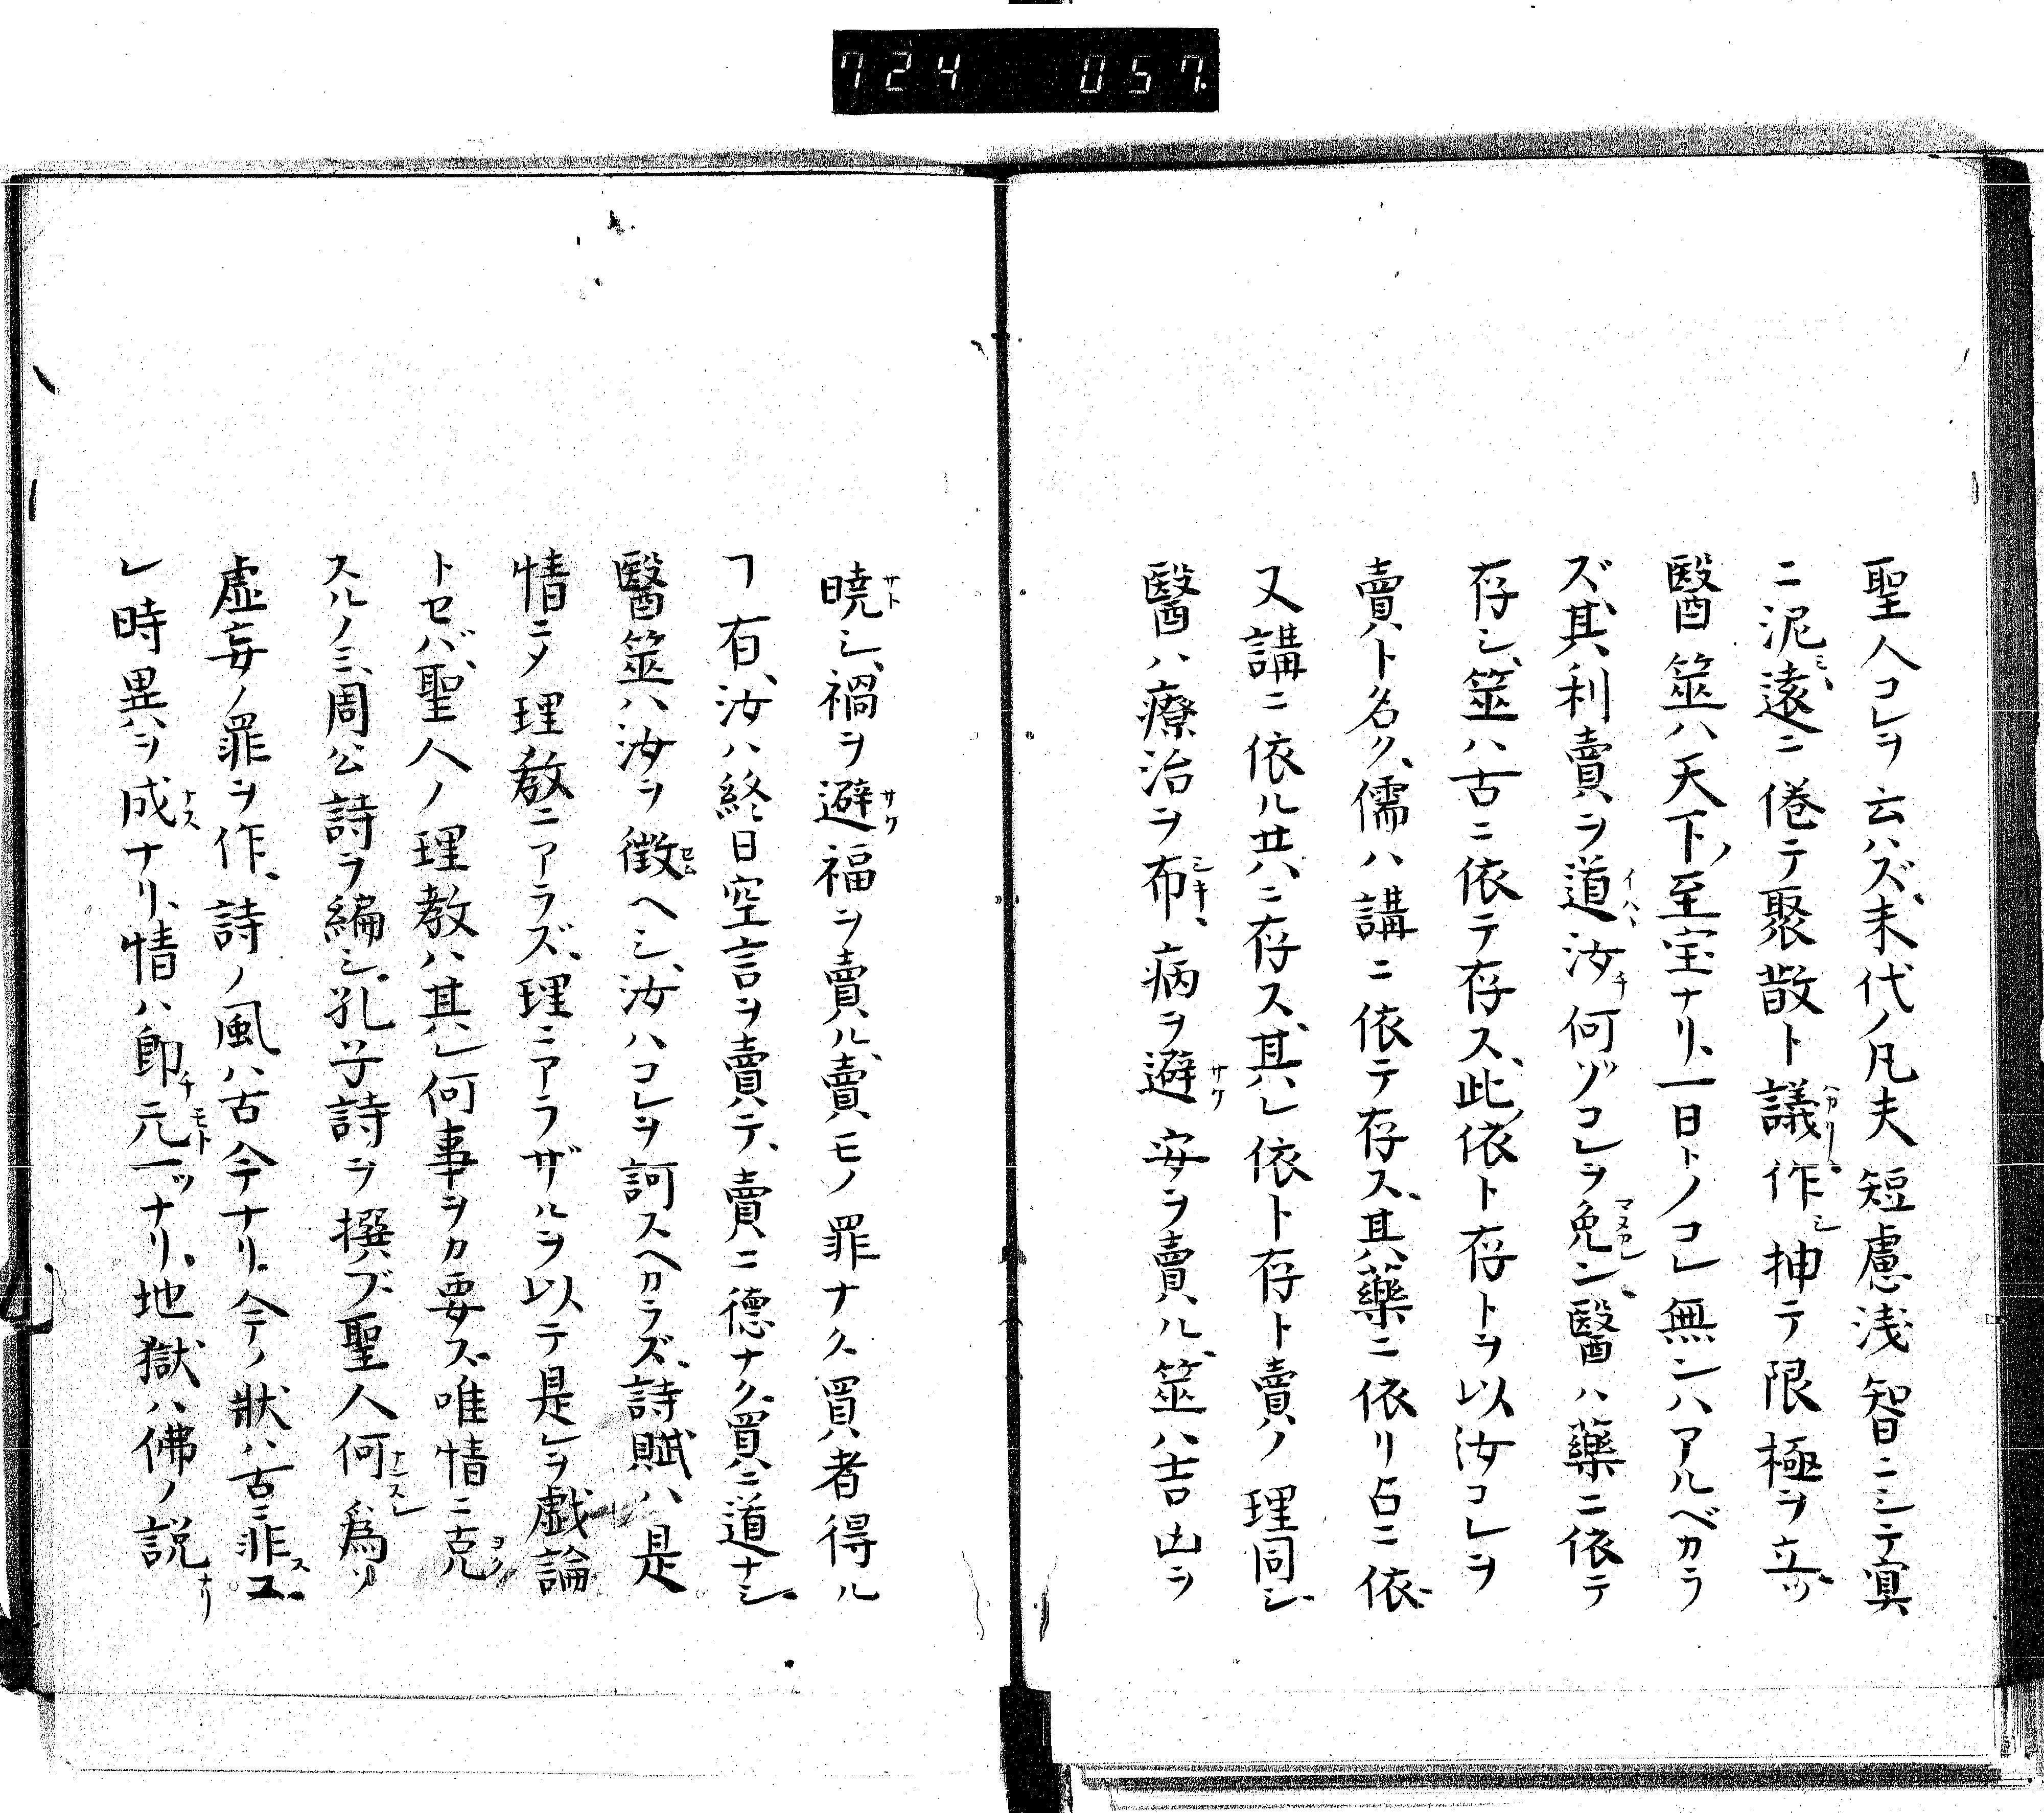 724 057.
聖人コレヲ云ハズ、末代ノ凡夫短慮浅智ニシテ寞
ニ泥ミ、遠ニ倦テ聚散ト議ハカリ、作シ抻テ限極ヲ立ツ、
醫筮ハ天下ノ至宝ナリ、一日トノコレ無ンハアルベカラ
ズ、其利賣ヲ道イハヽ汝チ何ゾコレヲ免マヌカレン、醫ハ藥ニ依テ
存シ、筮ハ古ニ依テ存ス、此ノ依ト存トヲ以汝コレヲ
賣ト名ク、儒ハ講ニ依テ存ス、其藥ニ依リ占ニ依、
又講ニ依ル共ニ存ス、其レ依ト存ト賣ノ理同シ、
醫ハ療治ヲ布シキ、病ヲ避サケ安ヲ賣ル、筮ハ吉凶ヲ
曉サトシ、禍ヲ避サケ福ヲ賣ル、賣モノ罪ナク買者得ル
ヿ有、汝ハ終日空言ヲ賣テ、賣ニ德ナク、買ニ道ナシ、
醫筮ハ汝ヲ徴セムヘシ、汝ハコレヲ訶スヘカラズ、詩賦ハ是
情ニメ理教ニアラズ、理ニアラザルヲ以テ是レヲ戯論
トセバ、聖人ノ理教ハ其レ何事ヲカ要ズ、唯情ニ克ヨク
スルノミ、周公詩ヲ編シ、孔子詩ヲ撰ブ、聖人何ナンスレ爲ソ
虚妄ノ罪ヲ作、詩ノ風ハ古今ナリ、今ノ狀ハ古ニ非ズ、コ
レ時異ヲ成ナスナリ、情ハ即チ元モト一ツナリ、地獄ハ佛ノ説ナリ